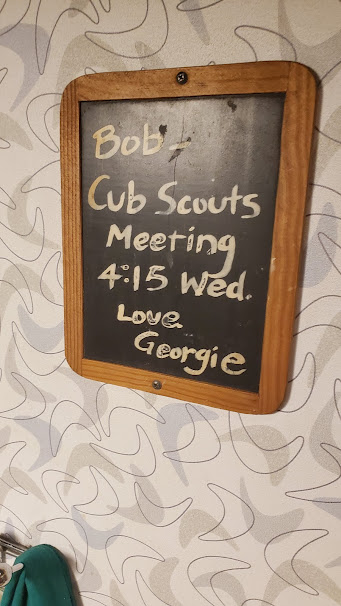 Bob-
Cub Scouts
Meeting
4:15 Wed.
Love
Georgie